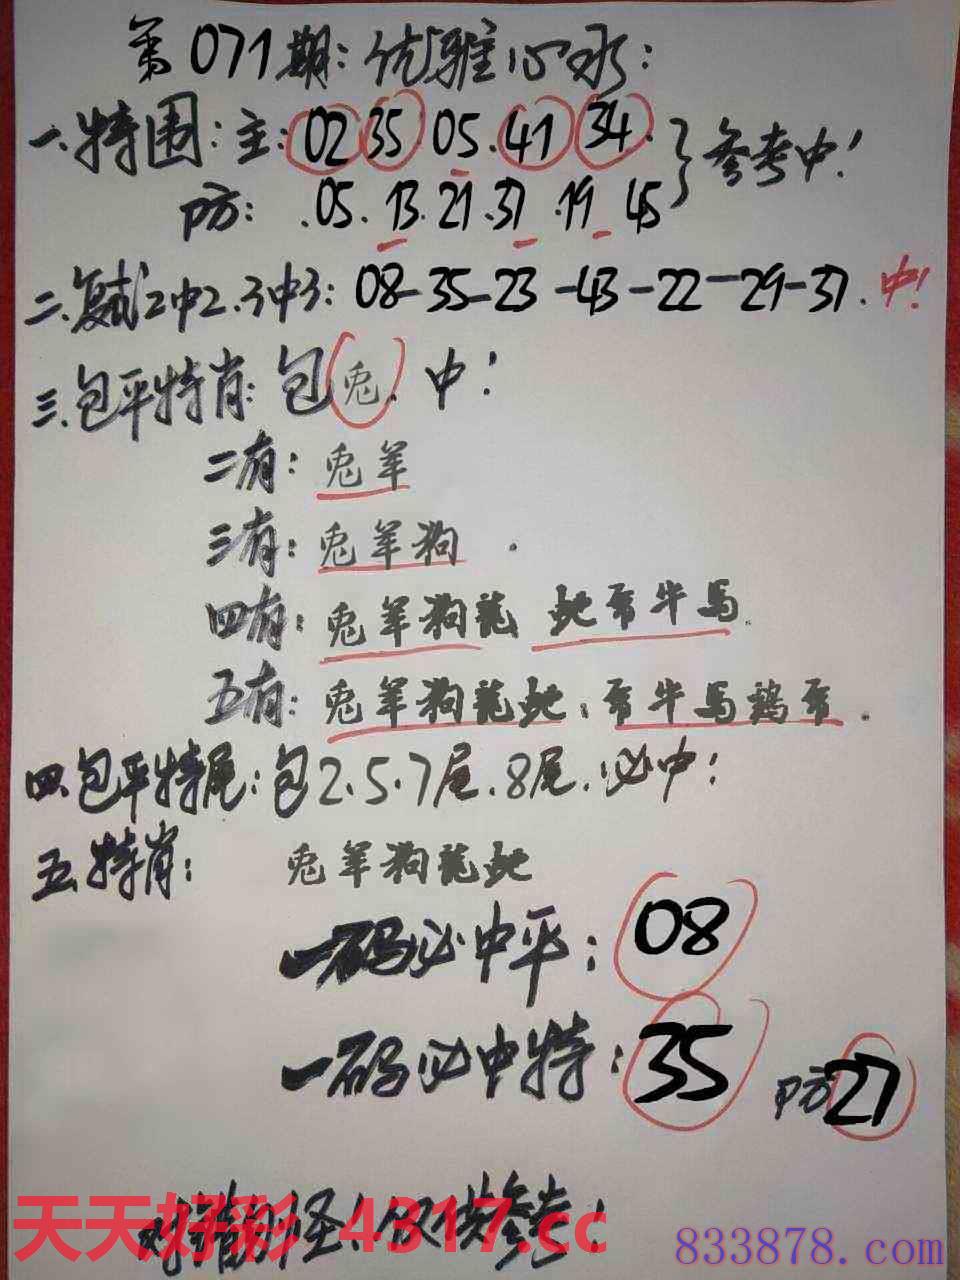 第071期：优雅心水：
一、特围：主：02 35 05. 41 34. }参考中！
防：.05. 13. 21. 37 .19 45
二、复试2中2.3中3：08-35-23-43-22-29-37. 中！
三、包平特肖：包兔. 中！
二有：兔羊
三有：兔羊狗.
四有：兔羊狗龙 蛇 牛马.
五有：兔羊狗龙蛇； 牛马鸡.
四、包平特尾：包2.5.7尾.8尾.必中！
五、特肖： 兔羊狗龙蛇
一码必中平：08
一码必中特：35 防27
对错勿怪！仅供参考！
天天好彩 4317.cc
833878.com